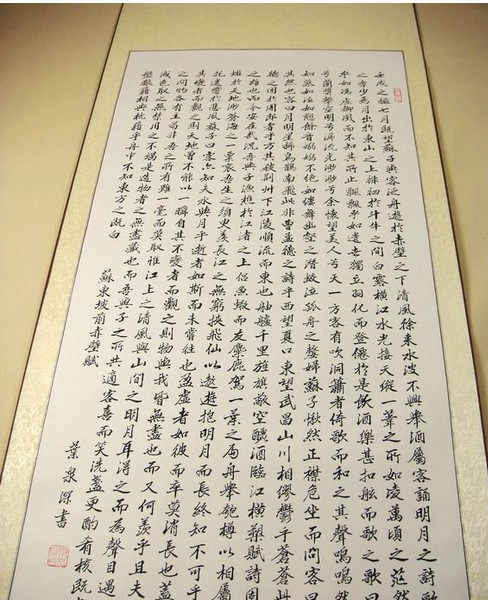 壬戌之秋七月既望蘇子與客泛舟遊於赤壁之下清風徐來水波不興舉酒屬客誦明月之詩
之章少焉月出於東山之上徘徊於斗牛之間白露橫江水光接天縱一葦之所如凌萬頃之茫然
乎如馮虛御風而不知其所止飄飄乎如遺世獨立羽化而登僊於是飲酒樂甚扣舷而歌之歌曰
兮蘭槳擊空明兮泝流光渺渺兮余懷望美人兮天一方客有吹洞簫者倚歌而和之其聲嗚嗚然
如慕如泣如訴餘音嫋嫋不絕如縷舞幽壑之潛蛟泣孤舟之嫠婦蘇子愀然正襟危坐而問客曰
其然也客曰月明星稀烏鵲南飛此非曹孟德之詩乎西望夏口東望武昌山川相繆鬱乎蒼蒼此
德之困於周郎者乎方其破荊州下江陵順流而東也舳艫千里旌旗蔽空釃酒臨江橫槊賦詩固
之雄也而今安在哉況吾與子漁樵於江渚之上侶魚蝦而友麋鹿駕一葉之扁舟舉匏樽以相屬
蝣於天地渺滄海之一粟哀吾生之須臾羨長江之無窮挾飛仙以遨遊抱明月而長終知不可乎
托遺響於悲風蘇子曰客亦知夫水與月乎逝者如斯而未嘗往也盈虛者如彼而卒莫消長也蓋
其變者而觀之則天地曾不能以一瞬自其不變者而觀之則物與我皆無盡也而又何羨乎且夫
之間物各有主苟非吾之所有雖一毫而莫取惟江上之清風與山間之明月耳得之而為聲目遇
色取之無禁用之不竭是造物者之無盡藏也而吾與子之所共適客喜而笑洗盞更酌肴核既
盤狼籍相與枕藉乎舟中不知東方之既白
蘇東坡前赤壁賦
葉泉深書